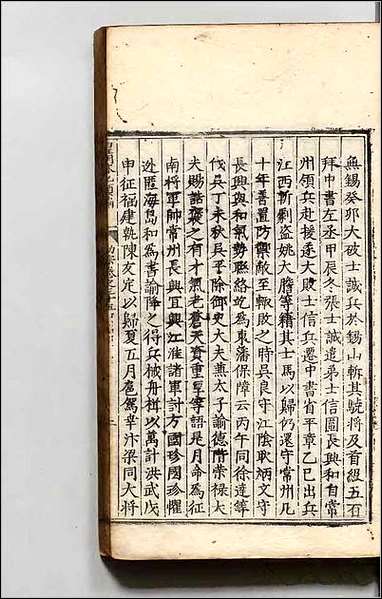 無錫癸卯大破士誠兵於錫山斬其驍將及首級五百
拜中書左丞甲辰冬張士誠遣弟士信圍長興和自常
州領兵赴援遂大敗士信兵遷中書省平章乙巳出兵
江西斬剃盜姚大膽等籍其士馬以歸仍還守常州凡
十年善置防禦敵至輒敗之時吳良守江陰耿炳文守
長興與和氣勢聯絡屹為東藩保障云丙午同徐達等
伐吳丁未秋吳平除御史大夫兼太子諭德階榮祿大
夫賜誥褒之有才氣老蒼天資重厚等語是月命為征
南將軍帥常州長興宜興江淮諸軍討方國珍國珍懼
逃匿海島和為書諭降之得兵械舟楫以萬計洪武戊
申征福建執陳友定以歸夏五月扈駕幸汴梁同大將